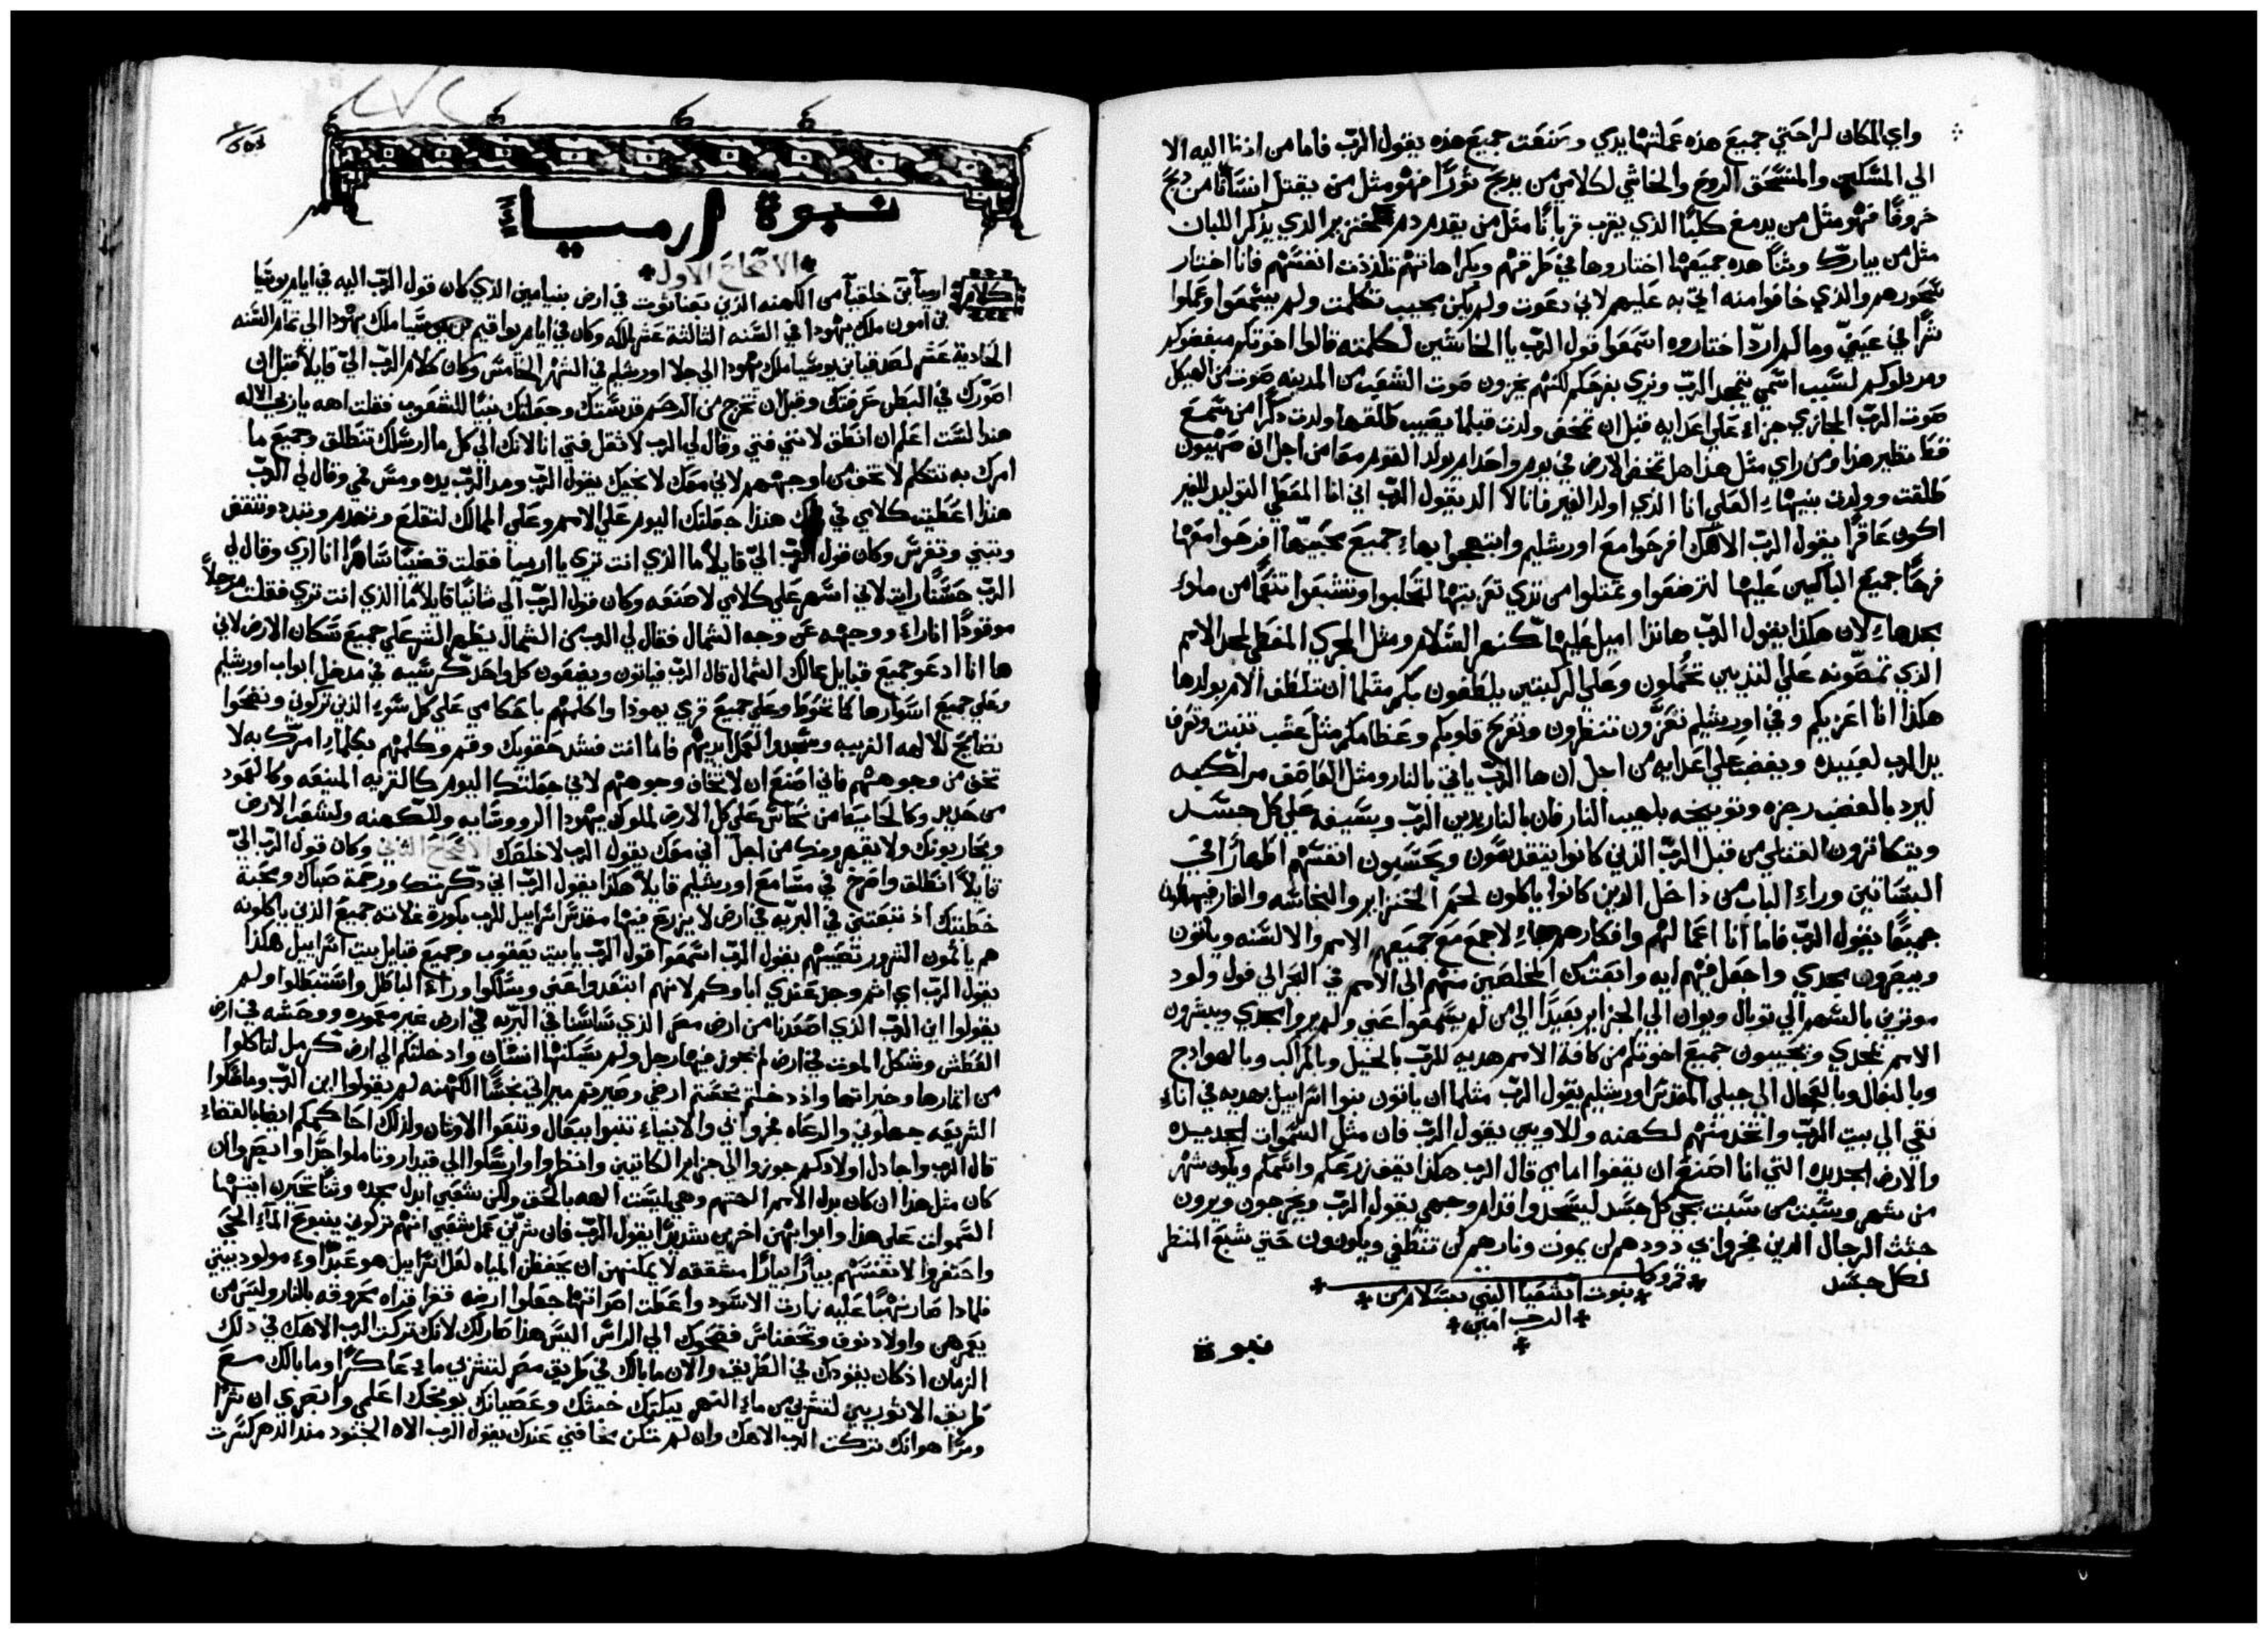 واي المكان لراحتي جميع هذه عملتها يدي وصنعت جميع هذه يقول الرب فاما من اذنا اليه الا
الي المسكين والمنسحق الروح والخاشي لكلامي من يذبح ثورًا فهو مثل من يقتل انسانًا من ذبح
خروفًا فهو مثل من يدمغ كلبًا الذي يقرب قربانًا مثل من يقدم دم خنزير الذي يذكر اللبان
مثل من يبارك وثنًا هذه جميعها اختاروها في طرقهم وبكراهاتهم تلذذت انفسهم فانا اختار
سخورهم والذي خافوا منه اتي به عليهم لاني دعوت ولم يكن مجيب تكلمت ولم يسمعوا وعملوا
شرًا في عينيّ وما لم ارد اختاروه اسمعوا قول الرب يا الخاشين لكلمته قالوا اخوتكم مبغضوكم
ومرذلوكم لسبب اسمي يتمجد الرب ونري بفرحكم لكنهم يخزون صوت الشعب من المدينه صوت من الهيكل
صوت الرب المجازي جزاء علي اعدايه قبل ان تتمخض ولدت قبلما يصيب طلقها ولدت ذكرًا من سمع
قط نظير هذا ومن راي مثل هذا هل تمخض الارض في يوم واحد ام يولد القوم معًا من اجل ان صهيون
طلقت وولدت بنيها العلي انا الذي اولد الغير فانا لا الد يقول الرب اني انا المعطي التوليد للغير
اكون عاقرًا يقول الرب الاهك افرحوا مع اورشليم وابتهجوا بها جميع محبيها افرحوا معها
فرحًا جميع الباكين عليها لترضعوا وتمتلوا من ثدي تعزيتها لتحلبوا وتشبعوا تنعمًا من ملوء
مجدها لان هكذا يقول الرب هانذا اميل عليها كنهر السلام ومثل المجري المغطي لمجد الامم
الذي تمصونه علي الثديين تحملون وعلي الركبتين يلطفون بكم مثلما ان تلطف الام بولدها
هكذا انا اعزيكم وفي اورشليم تعزون تنظرون وتفرح قلوبكم وعظامكم مثل عشب تنبت وتعرف
يد الرب لعبيده ويغضب علي اعدايه من اجل ان ها الرب ياتي بالنار ومثل العاصف مراكبه
ليرد بالغضب رجزه وتوبيخه بلهيب النار فان بالنار يدين الرب وبسيفه علي كل جسد
ويتكاثرون القتلي من قبل الرب الذين كانوا يتقدسون ويحسبون انفسهم اطهارًا في
البساتين وراء الباب من داخل الذين كانوا ياكلون لحم الخنزير والنجاسه والفار
جميعًا يقول الرب فاما انا اعمالهم وافكارهم جاء لاجمع مع جميعهم الامم والالسنه وياتون
ويبصرون مجدي واجعل فيهم ايه وابعث من المخلصين منهم الي الامم في البحر الي فول ولود
موترين بالسهم الي توبال ويوان الي الجزاير بعيدًا الي من لم يسمعوا عني ولم يروا مجدي ويبشرون
الامم بمجدي ويجيبون جميع اخوتكم من كافة الامم هديه للرب بالخيل وبالمراكب وبالهوادج
وبالبغال وبالجمال الي جبلي المقدس اورشليم يقول الرب مثلما ان ياتون بنوا اسرابيل بهديه في اناء
نقي الي بيت الرب واتخذ منهم لكهنه وللاويين يقول الرب فان مثل السموات الجديده
والارض الجديده التي انا اصنع ان يقفوا امامي قال الرب هكذا يقف زرعكم واسمكم ويكون شهر
من شهر وسبت من سبت يجي كل جسد ليسجدوا قدام وجهي يقول الرب ويخرجون ويرون
جثث الرجال الذين فجروا بي دودهم لن يموت ونارهم لن تنطفي ويكونون حتي شبع المنظر
لكل جسد
نبوت اشعيا النبي بسلام من
الرب امين
نبوة
نبوة ارمياء
الاصحاح الاول
كلام ارميا بن خلقيا من الكهنه الذين بعناثوت في ارض بنيامين الذي كان قول الرب اليه في ايام يوشيا
بن امون ملك يهودا في السنه الثالثة عشر لملكه وكان في ايام يواقيم بن يوشيا ملك يهودا الي تمام السنه
الحادية عشر لصدقيا بن يوشيا ملك يهودا الي جلا اورشليم في الشهر الخامس وكان كلام الرب الي قايلاً قبل ان
اصورك في البطن عرفتك وقبل ان تخرج من الرحم قدستك وجعلتك نبيًا للشعوب فقلت اهه يا ربي الاله
هنذا لست اعلم ان انطق لانني فتي وقال لي الرب لا تقل فتي انا لانك الي كل ما ارسلك تنطلق وجميع ما
امرك به تتكلم لا تخف من اوجههم لاني معك لانجيك يقول الرب ومد الرب يده ومس فمي وقال لي الرب
هنذا اعطيت كلامي في فمك هنذا جعلتك اليوم علي الامم وعلي الممالك لتقلع وتهدم وتبدد وتنقض
وتبني وتغرس وكان قول الرب الي قايلاً ما الذي انت تري يا ارميا فقلت قضيبًا ساهرًا انا اري وقال لي
الرب حسنًا رايت لاني اسهر علي كلامي لاصنعه وكان قول الرب الي ثانيًا قايلاً ما الذي انت تري فقلت مرجلاً
موقودًا انا اراء ووجهه عن وجه الشمال فقال لي الرب من الشمال يظهر الشر علي جميع سكان الارض لاني
ها انا ادعو جميع قبايل ممالك الشمال قال الرب فياتون ويضعون كل واحد كرسيه في مدخل ابواب اورشليم
وعلي جميع اسوارها كما تحوط وعلي جميع قري يهودا واكلمهم باحكامي علي كل شرهم الذين تركوني وذبحوا
ذبايح للالهه الغريبه وسجدوا لعمل ايديهم فاما انت فشد حقويك وقم وكلمهم بكلما امرك به لا
تخف من وجوههم فاني اصنع ان لا تخاف وجوههم لاني جعلتك اليوم كالقريه المنيعه وكالعمود
من حديد وكالحايط من نحاس علي كل الارض لملوك يهودا الروسايه وللكهنه ولشعب الارض
ويحاربونك ولا يقهرونك من اجل اني معك يقول الرب لاخلصك الاصحاح الثاني وكان قول الرب الي
قايلاً انطلق واصرخ في مسامع اورشليم قايلاً هكذا يقول الرب اني ذكرتك ورحمة صباك ومحبة
خطبتك اذ تبعتني في البريه في ارض لا يزرع فيها مقدس اسراييل للرب بكورة غلاته جميع الذين ياكلونه
هم ياثمون الشرور تصيبهم يقول الرب اسمعوا قول الرب يا بيت يعقوب وجميع قبايل بيت اسراييل هكذا
يقول الرب اي اثم وجد عندي اباوكم لانهم ابتعدوا عني وسلكوا وراء الباطل واستبطلوا ولم
يقولوا اين الرب الذي اصعدنا من ارض مصر الذي ساسنا في البريه في ارض غير معموره ووحشه في ارض
العطش وشكل الموت في ارض لم يجوز فيها رجل ولم يسكنها انسان وادخلتكم الي ارض كرمل لتاكلوا
من اثمارها وخيراتها واذ دخلتم نجستم ارضي وصيرتم ميراثي نجسًا الكهنه لم يقولوا اين الرب وماسكوا
الشريعه جهلوني والرعاه فجروا بي والانبياء تنبوا ببعال وتبعوا الاوثان ولذلك احاكمكم ايضا بالقضاء
قال الرب واجادل اولادكم جوزوا الي جزاير الكاتيين وانظروا وارسلوا الي قيدار وتاملوا جدًا وابصروا ان
كان مثل هذا ان كان بدل الامم الهتهم وهي ليست الهه بالحق ولكن شعبي ابدل مجده وثنًا تحيرن ايتها
السموات علي هذا وابوابهن اخربن شديدًا يقول الرب فان شرين عمل شعبي انهم تركوني ينبوع الماء الحي
واحتفروا لانفسهم بيارًا بيارًا مشققه لا يمكنهن ان يحفظن المياه لعل اسراييل هو عبدًا او مولود بيتي
فلماذا صار نهبًا عليه زارت الاسود واعطت اصواتها جعلوا ارضه قفرا قراه محروقه بالنار وليس من
يعمرهن واولاد نوف وتحفناس فضحوك الي الراس اليس هذا صار لك لانك تركت الرب الاهك في ذلك
الزمان اذ كان يقودك في الطريق والان ما بالك في طريق مصر لتشربي ماء عاكرًا وما بالك مع
طريق الاثوريين لتشربي من ماء النهر يبكتك خبثك وعصيانك يوبخك اعلمي وابصري ان شرًا
ومرًا هو انك تركت الرب الاهك وان لم تكن مخافتي عندك يقول الرب الاه الجنود منذ الدهر كسرت